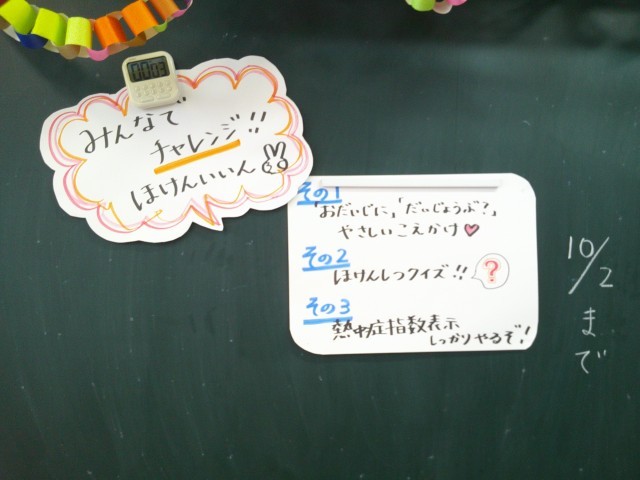 みんなで
チャレンジ!!
ほけんいいん
その1
「おだいじに」「だいじょうぶ?」
やさしいこえかけ♥
その2
ほけんしつクイズ!! ?
その3
熱中症指数表示
しっかりやるぞ!
10/2まで